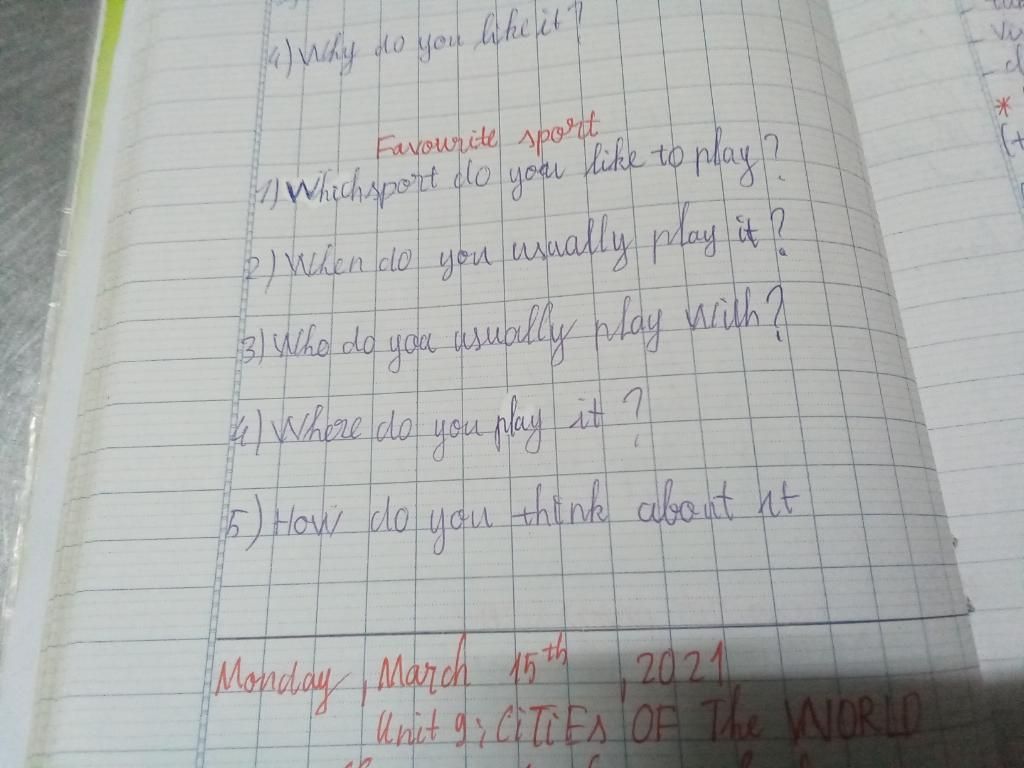 4) Why do you like it?
Favourite sport
1) Which sport do you like to play?
2) When do you usually play it?
3) Who do you usually play with?
4) Where do you play it?
5) How do you think about it
Monday, March 15th, 2021
Unit 9: CiTiEs OF The WORLD
*